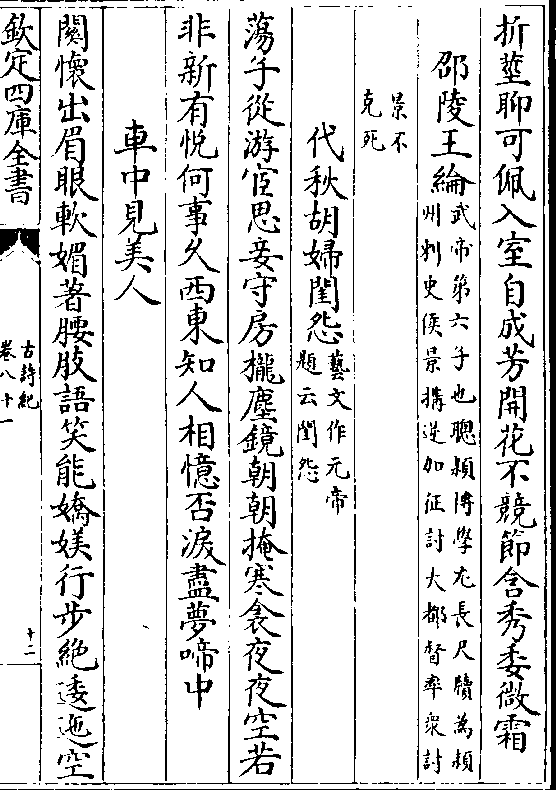 折莖聊可佩入室自成芳開花不競節含秀委微霜
邵陵王綸武帝第六子也聰穎博學尤長尺牘為頴
州刺史侯景搆逆加征討大都督率衆討
景不
克死
代秋胡婦閨怨藝文作元帝
題云閨怨
蕩子從游宦思妾守房櫳塵鏡朝朝掩寒衾夜夜空若
非新有悅何事久西東知人相憶否淚盡夢啼中
車中見美人
關懷出眉眼軟媚著腰肢語笑能嬌媄行步絶逶迤空
欽定四庫全書
古詩紀
卷八十一
十二